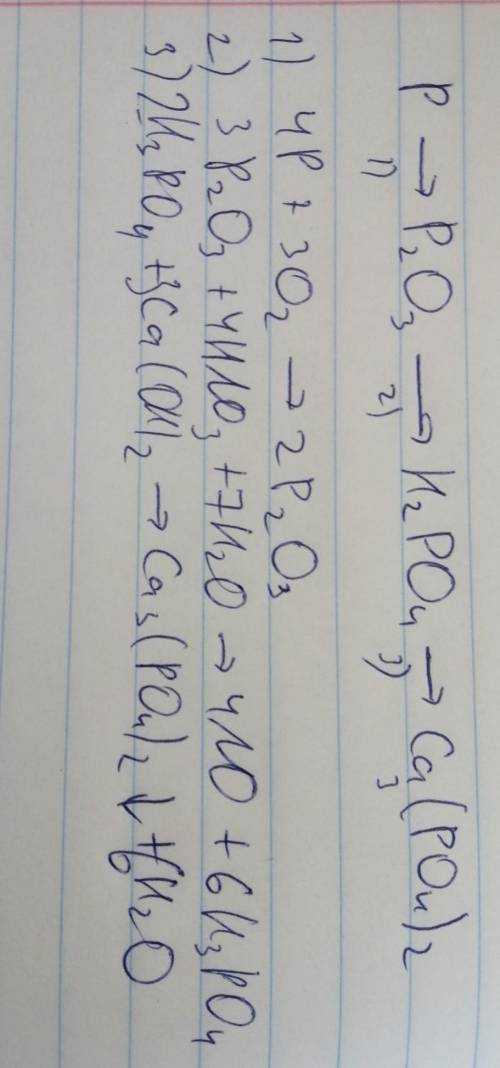 P → P₂O₃ → H₂PO₄ → Ca₃(PO₄)₂
1) 2) 3)
1) 4P + 3O₂ → 2P₂O₃
2) 3P₂O₃ + 4HNO₃ + 7H₂O → 4NO + 6H₃PO₄
3) 2H₃PO₄ + 3Ca(OH)₂ → Ca₃(PO₄)₂ ↓ + 6H₂O